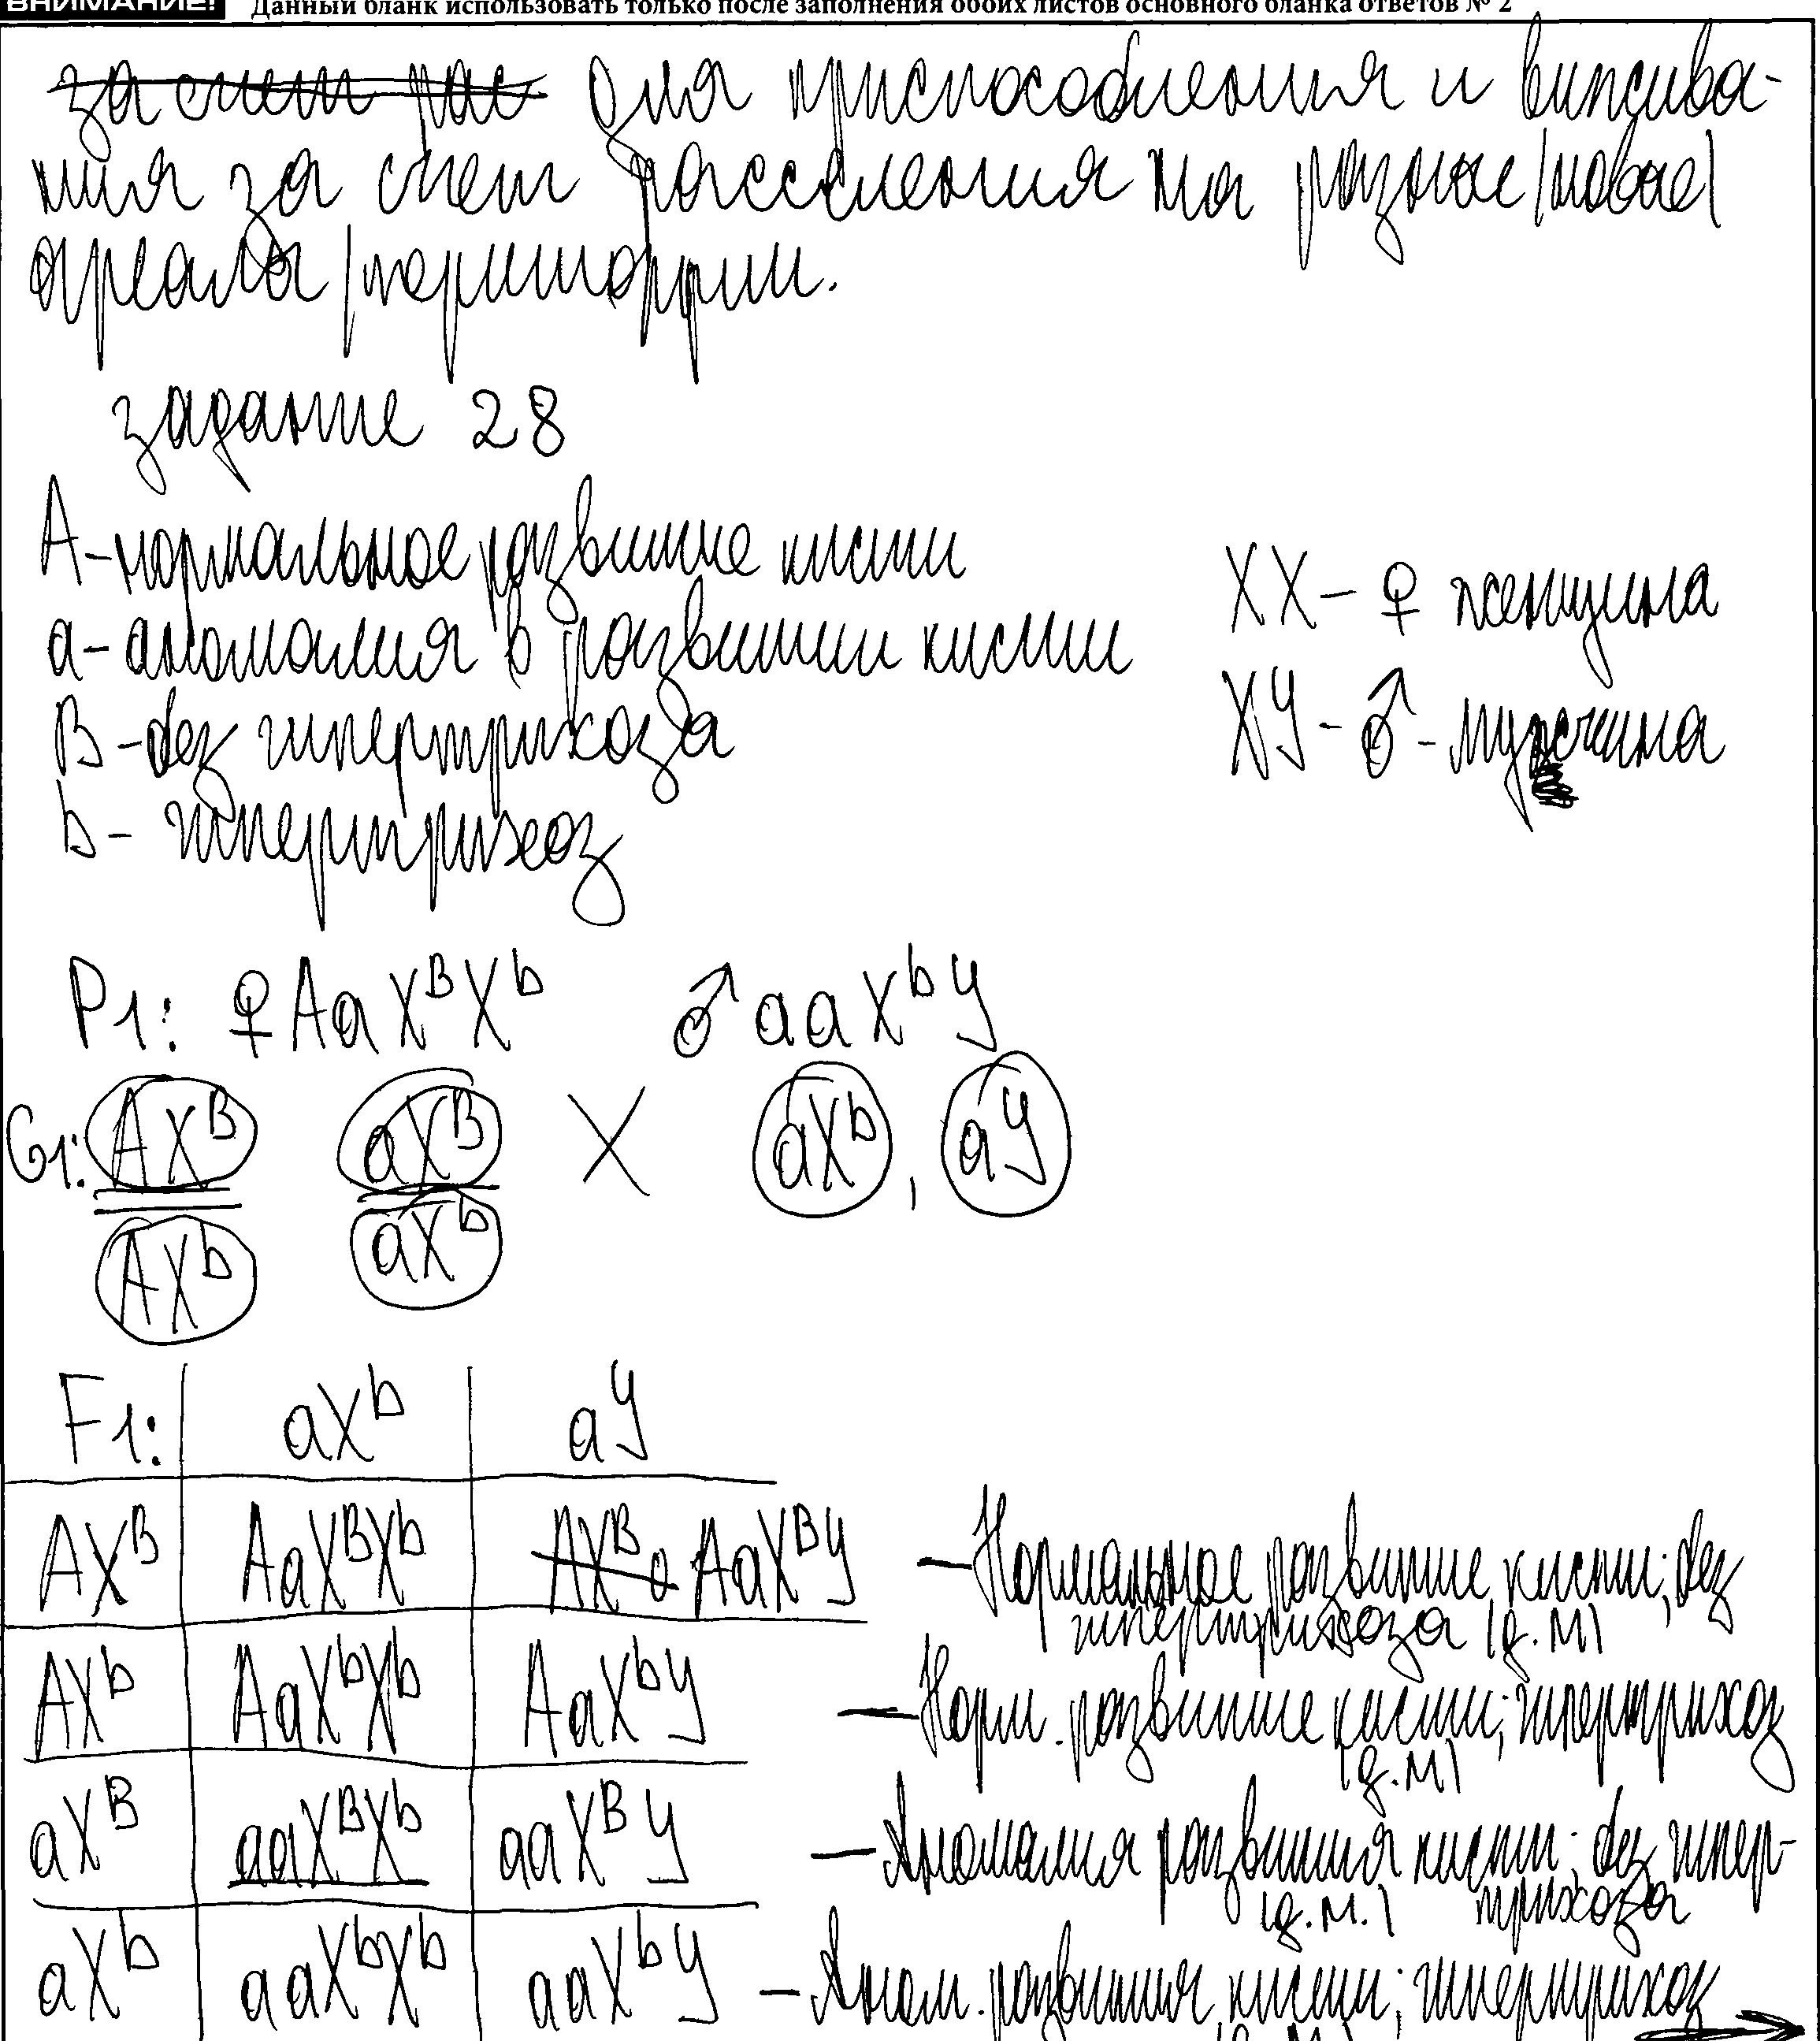 ВНИМАНИЕ! Данный бланк использовать только после заполнения обоих листов основного бланка ответов № 2
за счет рас для приспособления и выжива-
ния за счет расселения на разные/новые/
ареалы/територрии.
задание 28
A - нормальное развитие кисти
a - аномалия в развитии кисти
B - без гипертрихоза
b - гипертрихоз
XX - ♀ женщина
XY - ♂ - мужчина
P1: ♀ AaXᴮXᵇ ♂ aaXᵇY
G1: AXᴮ aXᴮ X aXᵇ, aY
AXᵇ aXᵇ
F1: aXᵇ aY
AXᴮ AaXᴮXᵇ AXᴮa AaXᴮY — Нормальное развитие кисти; без
гипертрихоза (д.М)
AXᵇ AaXᵇXᵇ AaXᵇY — Норм. развитие кисти; гипертрихоз
(д.М)
aXᴮ aaXᴮXᵇ aaXᴮY — Аномалия развития кисти; без гипер-
(д.М.) трихоза
aXᵇ aaXᵇXᵇ aaXᵇY — Аном. развития кисти; гипертрихоз